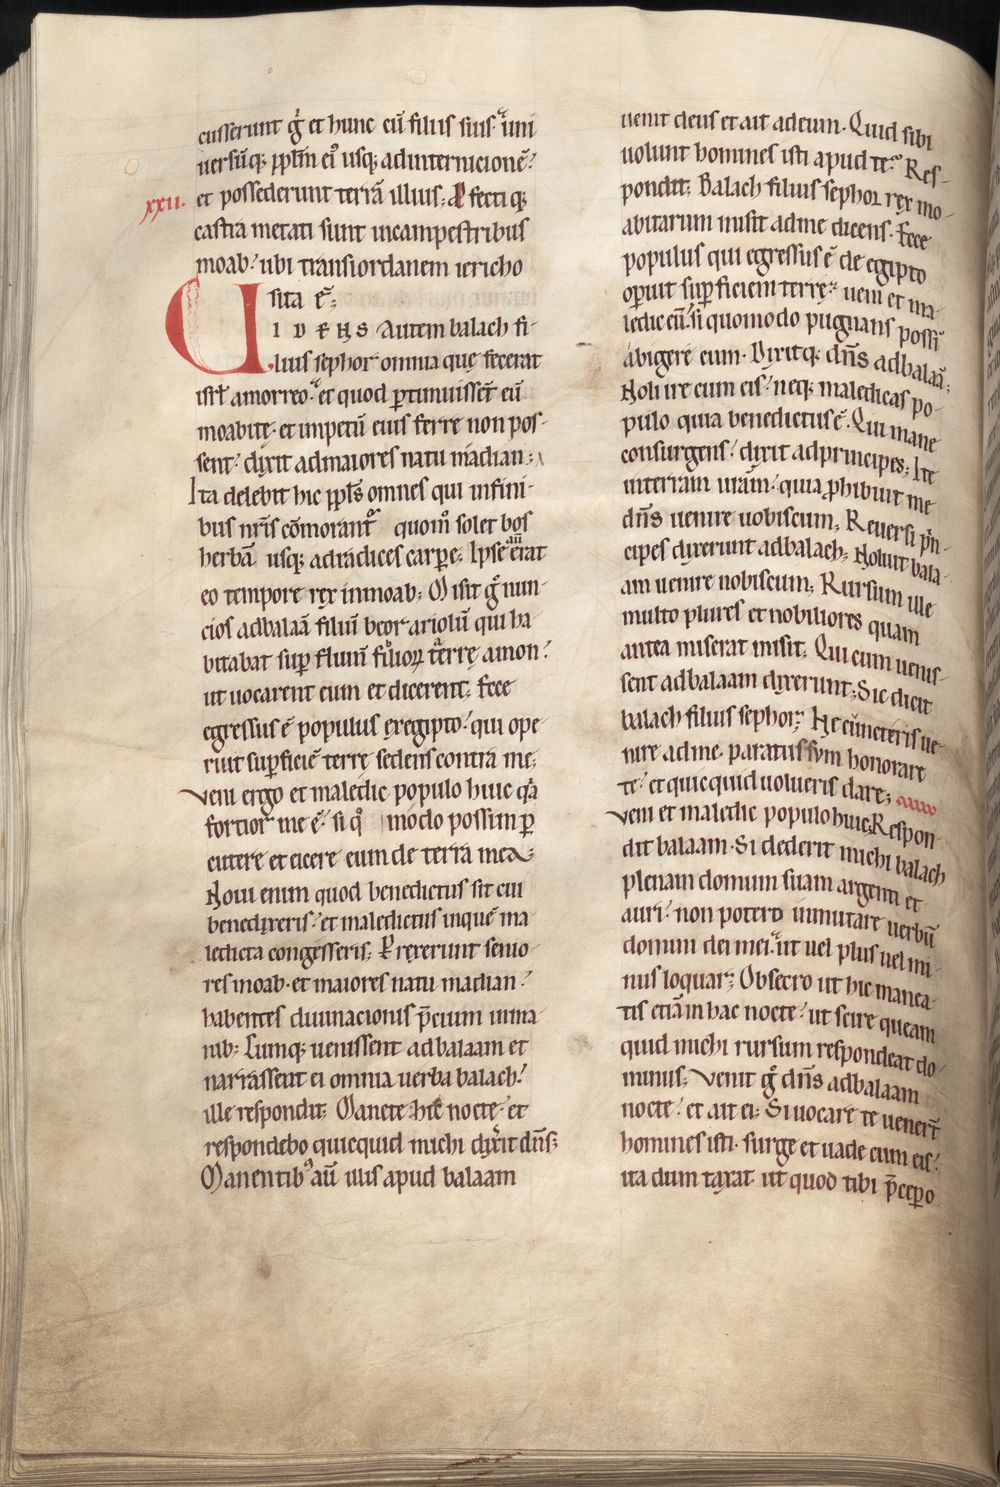 cusserunt g̊ et hunc cū filiis suis· uni
uersūq; pp̄lm ei᾽ usq; adinternicionē·
xxii. et possederunt terrā illius; Pfecti q;
castra metati sunt incampestribus
moab· ubi transiordanem iericho
sita ē;
UIDENS Autem balach fi-
lius sephor omnia quę fecerat
isrł amorreo· et quod ꝑtimuisset̄ eū
moabitę· et impetū eius ferre non pos-
sent· dixit admaiores natu madian;
Ita delebit hic pp̄ls omnes qui infini-
bus nr̄is cōmorant᷑ quom̊ solet bos
herbā usq; adradices carpe; Ipse aū erat
eo tempore rex inmoab; Misit g̊ nun-
cios adbalaā filiū beor ariolū qui ha
bitabat suꝑ flum̄ filioꝝ terrę amon·
ut uocarent eum et dicerent; Ecce
egressus ē populus exegipto· qui ope-
ruit suꝑficiē terrę sedens contra me;
Veni ergo et maledic populo huic q̄a
fortior me ē· si q̊ modo possim ꝑ
cutere et eicere eum de terra mea;
Noui enim quod benedictus sit cui
benedixeris· et maledictus inquē ma
ledicta congesseris; Prexerunt senio
res moab· et maiores natu madian·
habentes diuinacionis p̄cium inma
nib; Cumq; uenissent adbalaam et
narrassent ei omnia uerba balach·
ille respondit; Manete hic nocte· et
respondebo quicquid michi dixit dn̄s;
Manentib᾽ aū illis apud balaam
uenit deus et ait adeum· Quid sibi
uolunt homines isti apud te· Res-
pondit; Balach filius sephor rex mo-
abitarum misit adme dicens· Ecce
populus qui egressus ē de egipto
operuit suꝑficiem terrę· ueni et ma-
ledic eū· si quomodo pugnans possī
abigere eum· Dixitq; dn̄s adbalaā;
Noli ire cum eis· neq; maledicas po-
pulo quia benedictus ē· Qui mane
consurgens· dixit adprincipes; Ite
interram ur̄am· quia ꝓhibuit me
dn̄s uenire uobiscum; Reuersi pn̄-
cipes dixerunt adbalach; Noluit bala-
am uenire nobiscum; Rursum ille
multo plures et nobiliores quam
antea miserat misit; Qui cum uenis-
sent adbalaam dixerunt; Sic dicit
balach filius sephor; Ne cūncteris ue-
nire adme· paratus sum honorare
te· et quicquid uolueris dare;
Veni et maledic populo huic; Respon-
dit balaam· Si dederit michi balach
plenam domum suam argenti et
auri· non potero inmutare uerbū
domini dei mei· ut uel plus uel mi-
nus loquar; Obsecro ut hic manea-
tis etiā in hac nocte· ut scire queam
quid michi rursum respondeat do-
minus; Venit g̊ dn̄s adbalaam
nocte· et ait ei; Si uocare te uener̄t
homines isti· surge et uade cum eis·
ita dum taxat· ut quod tibi p̄cepero